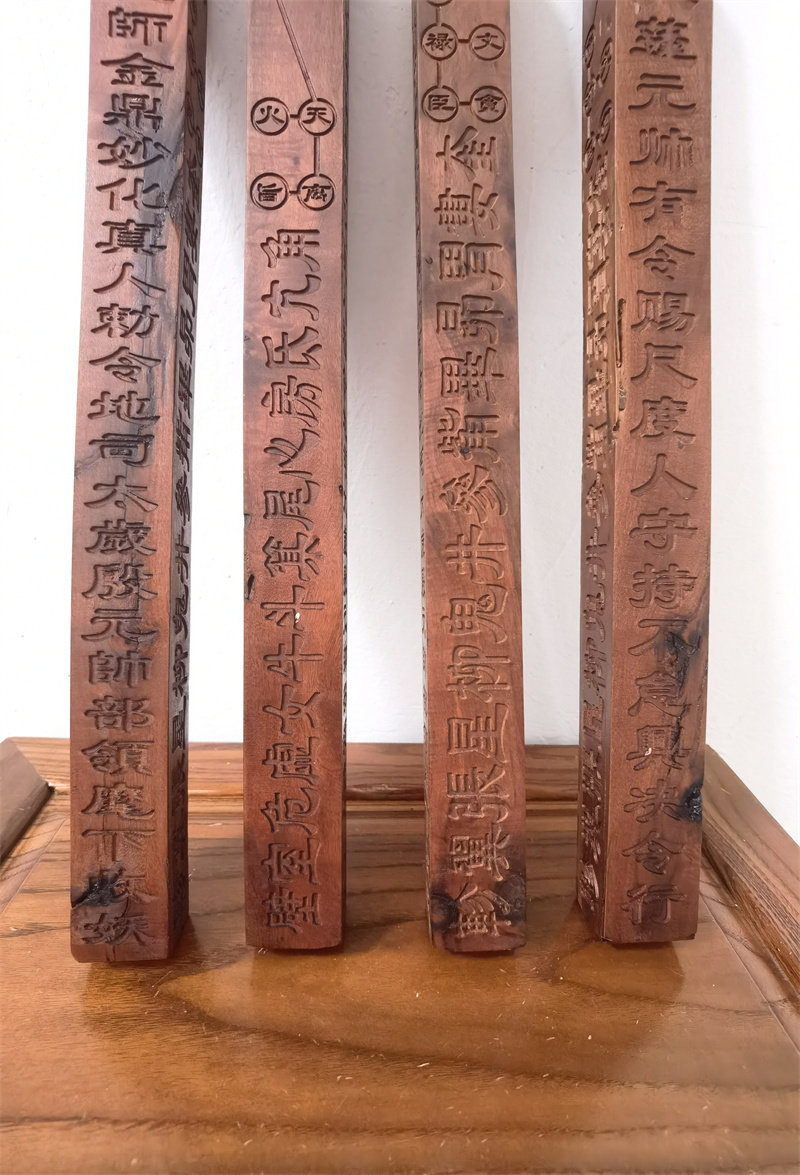 師金鼎妙化真人勅令地司太歲殷元帥部領麾下收妖
火天
角亢氐房心尾箕斗牛女虛危室壁
禄文
臣貪
奎婁胃昴畢觜參井鬼柳星張翼軫
蓬元帅有令赐尺度人守持不怠具决令行